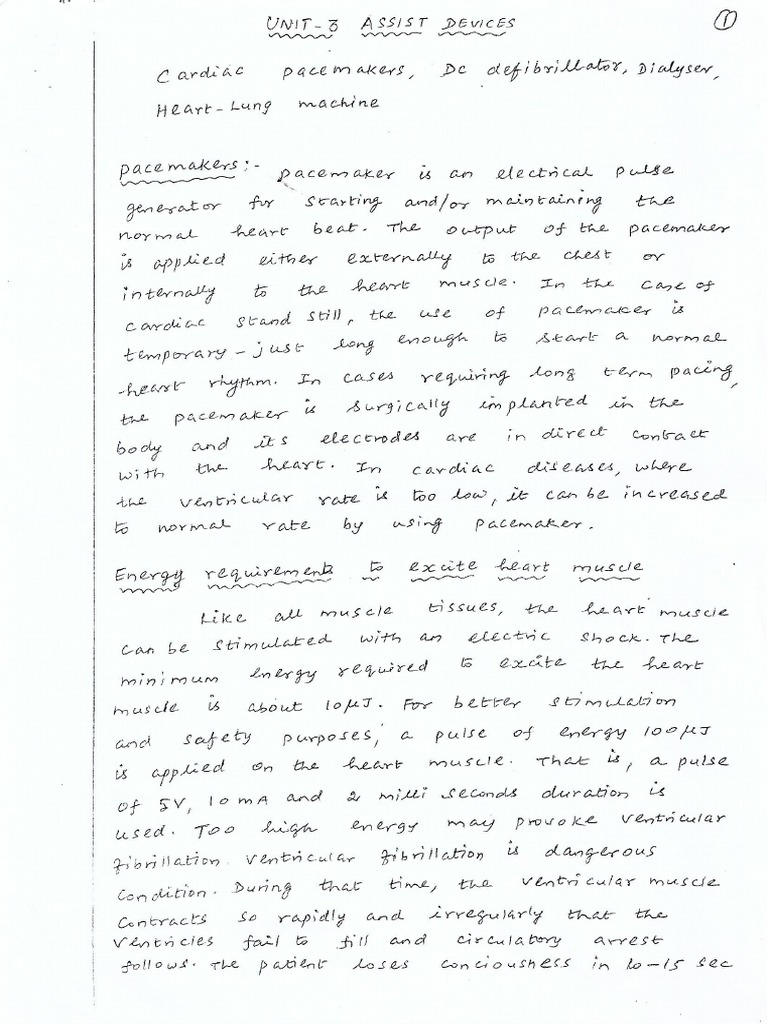 UNIT-3 ASSIST DEVICES
1
Cardiac pacemakers, Dc defibrillator, Dialyser,
Heart-Lung machine
pacemakers:- pacemaker is an electrical pulse
generator for starting and/or maintaining the
normal heart beat. The output of the pacemaker
is applied either externally to the chest or
internally to the heart muscle. In the case of
cardiac stand still, the use of pacemaker is
temporary - just long enough to start a normal
heart rhythm. In cases requiring long term pacing,
the pacemaker is surgically implanted in the
body and its electrodes are in direct contact
with the heart. In cardiac diseases, where
the ventricular rate is too low, it can be increased
to normal rate by using pacemaker.
Energy requirements to excite heart muscle
Like all muscle tissues, the heart muscle
can be stimulated with an electric shock. The
minimum energy required to excite the heart
muscle is about 10μJ. For better stimulation
and safety purposes, a pulse of energy 100μJ
is applied on the heart muscle. That is, a pulse
of 5V, 10mA and 2 milli seconds duration is
used. Too high energy may provoke ventricular
fibrillation. ventricular fibrillation is dangerous
condition. During that time, the ventricular muscle
contracts so rapidly and irregularly that the
ventricles fail to fill and circulatory arrest
follows. The patient loses conciousness in 10-15 sec